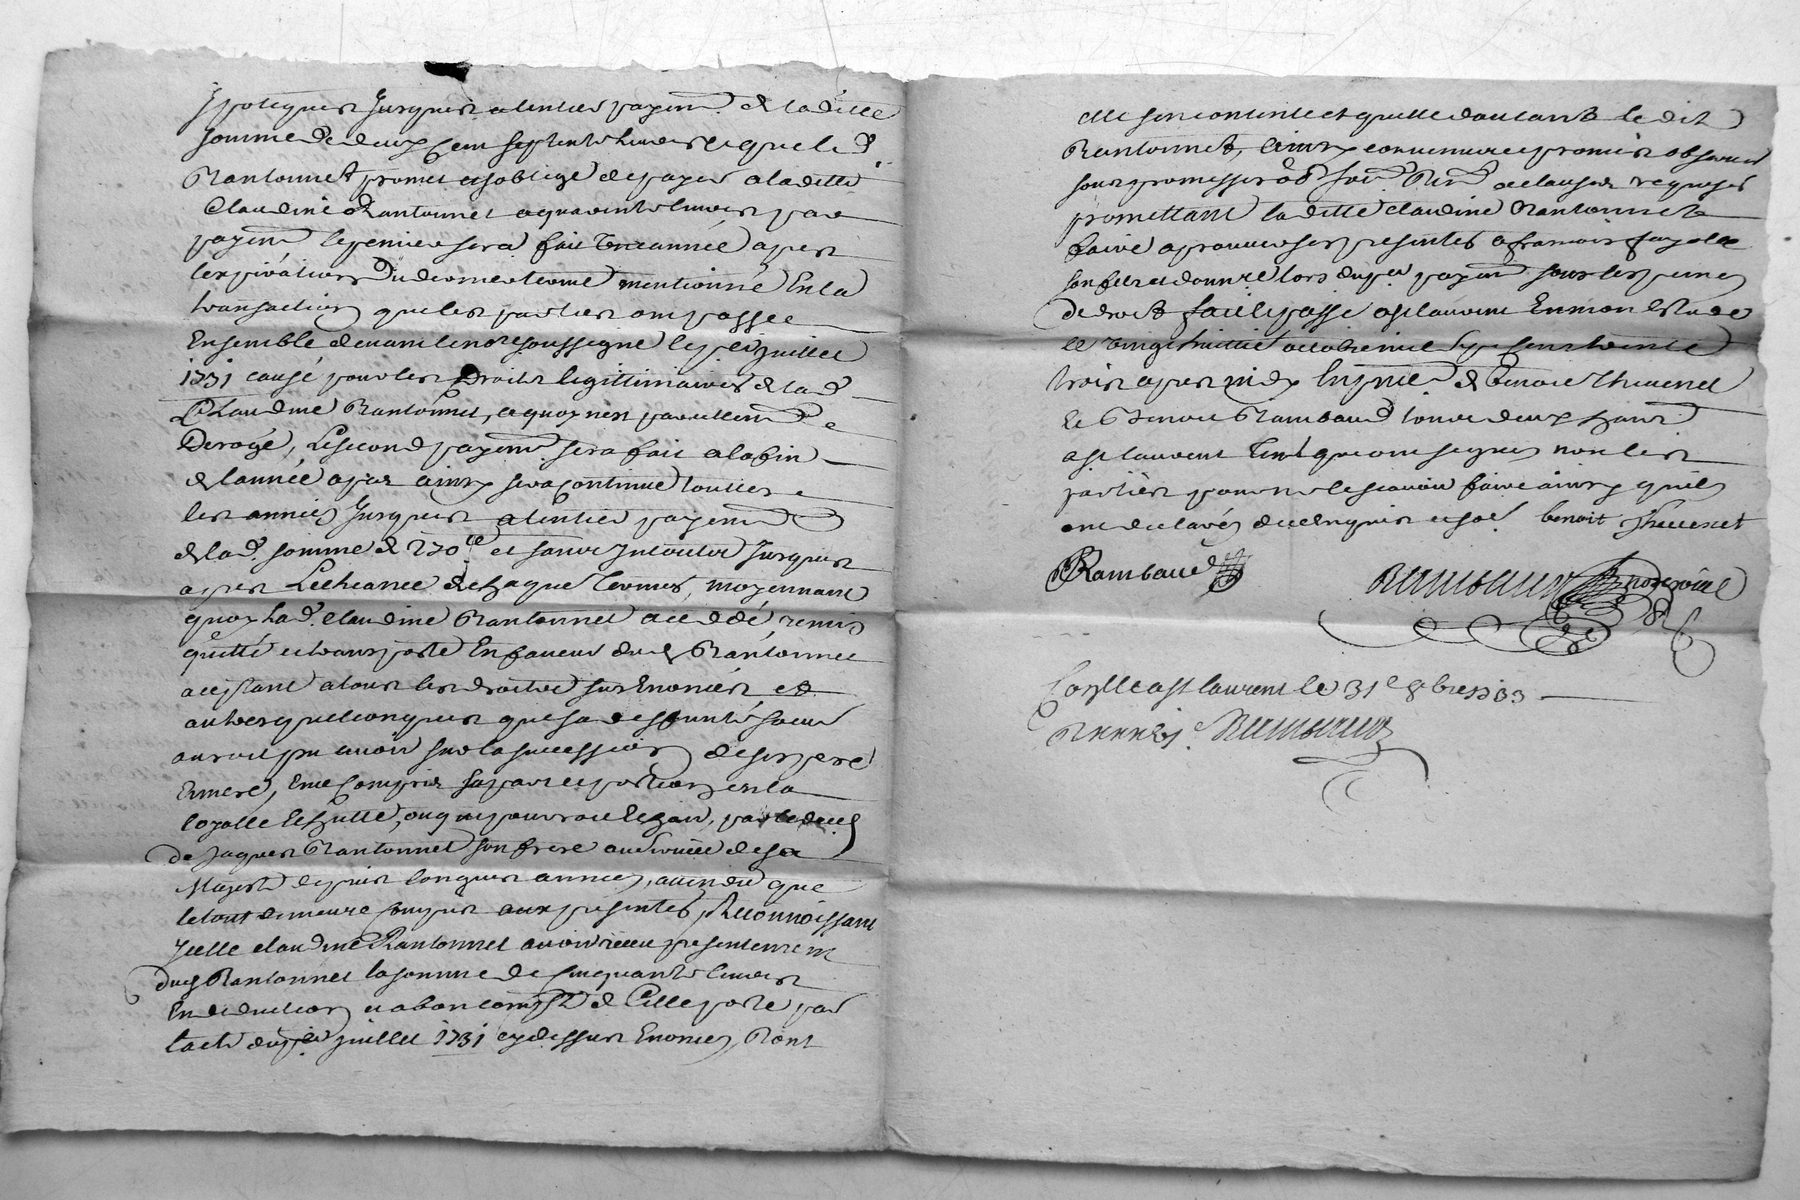 ypotequer jusques a lentier payem.t de laditte
somme de deux cent septente livres laquelle led.
Rantonnet promet et soblige de payer a laditte
Claudine Rantonnet a quarente livres par
payem.t le premier sera fait une année apres
lexpiration du dernier terme mentionné en la
transaction que les parties ont passée
Ensemble devant le no.re soussigné le p.er juillet
1731 causé pour les droits legittimaires de lad.
Claudine Rantonnet, a quoy nest par icelluy
Derogé, Le second payem.t sera fait a la fin
de lannée apres ainsy sera continué touttes
les années jusques a lentier payem.t
de lad. somme de 270 ll et sans interets jusques
apres Lecheance de chaque termes, moyennant
quoy lad. claudine Rantonnet a cedé, remis
quitté et transporté En faveur dud. Rantonnet
aceptant a tous les droits sus Enoncés et
autres quelconques que sa deffunte soeur
auroit pu avoir sur la succession de ses pere
Et mere, Eme Compris sa part et portion en la
 de Jaques Rantonnet son frere au service de sa
Majesté depuis longues années, attendu que
le tout demeure Compris aux presentes, Reconnoissant
jcelle claudine Rantonnet avoir reçeu presentement
dud. Rantonnet la somme de Cinquante livres
En deduction et a bon compte de Celle portée par
lacte du p.er juillet 1731 cy dessus Enoncé, Dont
elle sen contente et quitte dautant le dit
Rantonnet, ainsy convenu et promis observer
sous promesses et clauses requises
promettant laditte claudine Rantonnet
faire aprouver ses presentes a francois fayolle
son fils et donnre lors du p.er payem.t sous les peines
de droit fait et passé a St laurent En mon Estude
le vingt huittie octobre mil sept cent trente
trois apres midy En pnce de Benoit Thevenet
Et Benoit Rambaud tous deux
a St laurent Tem. qui ont signés non les
parties pour ne le scavoir faire ainsy quils
ont declarés de ce Enquis et som. benoit Thevenet
Rambaud Rambaud no.re royal
Con.llé a St laurent le 31e 8bre 1733
Rambaud